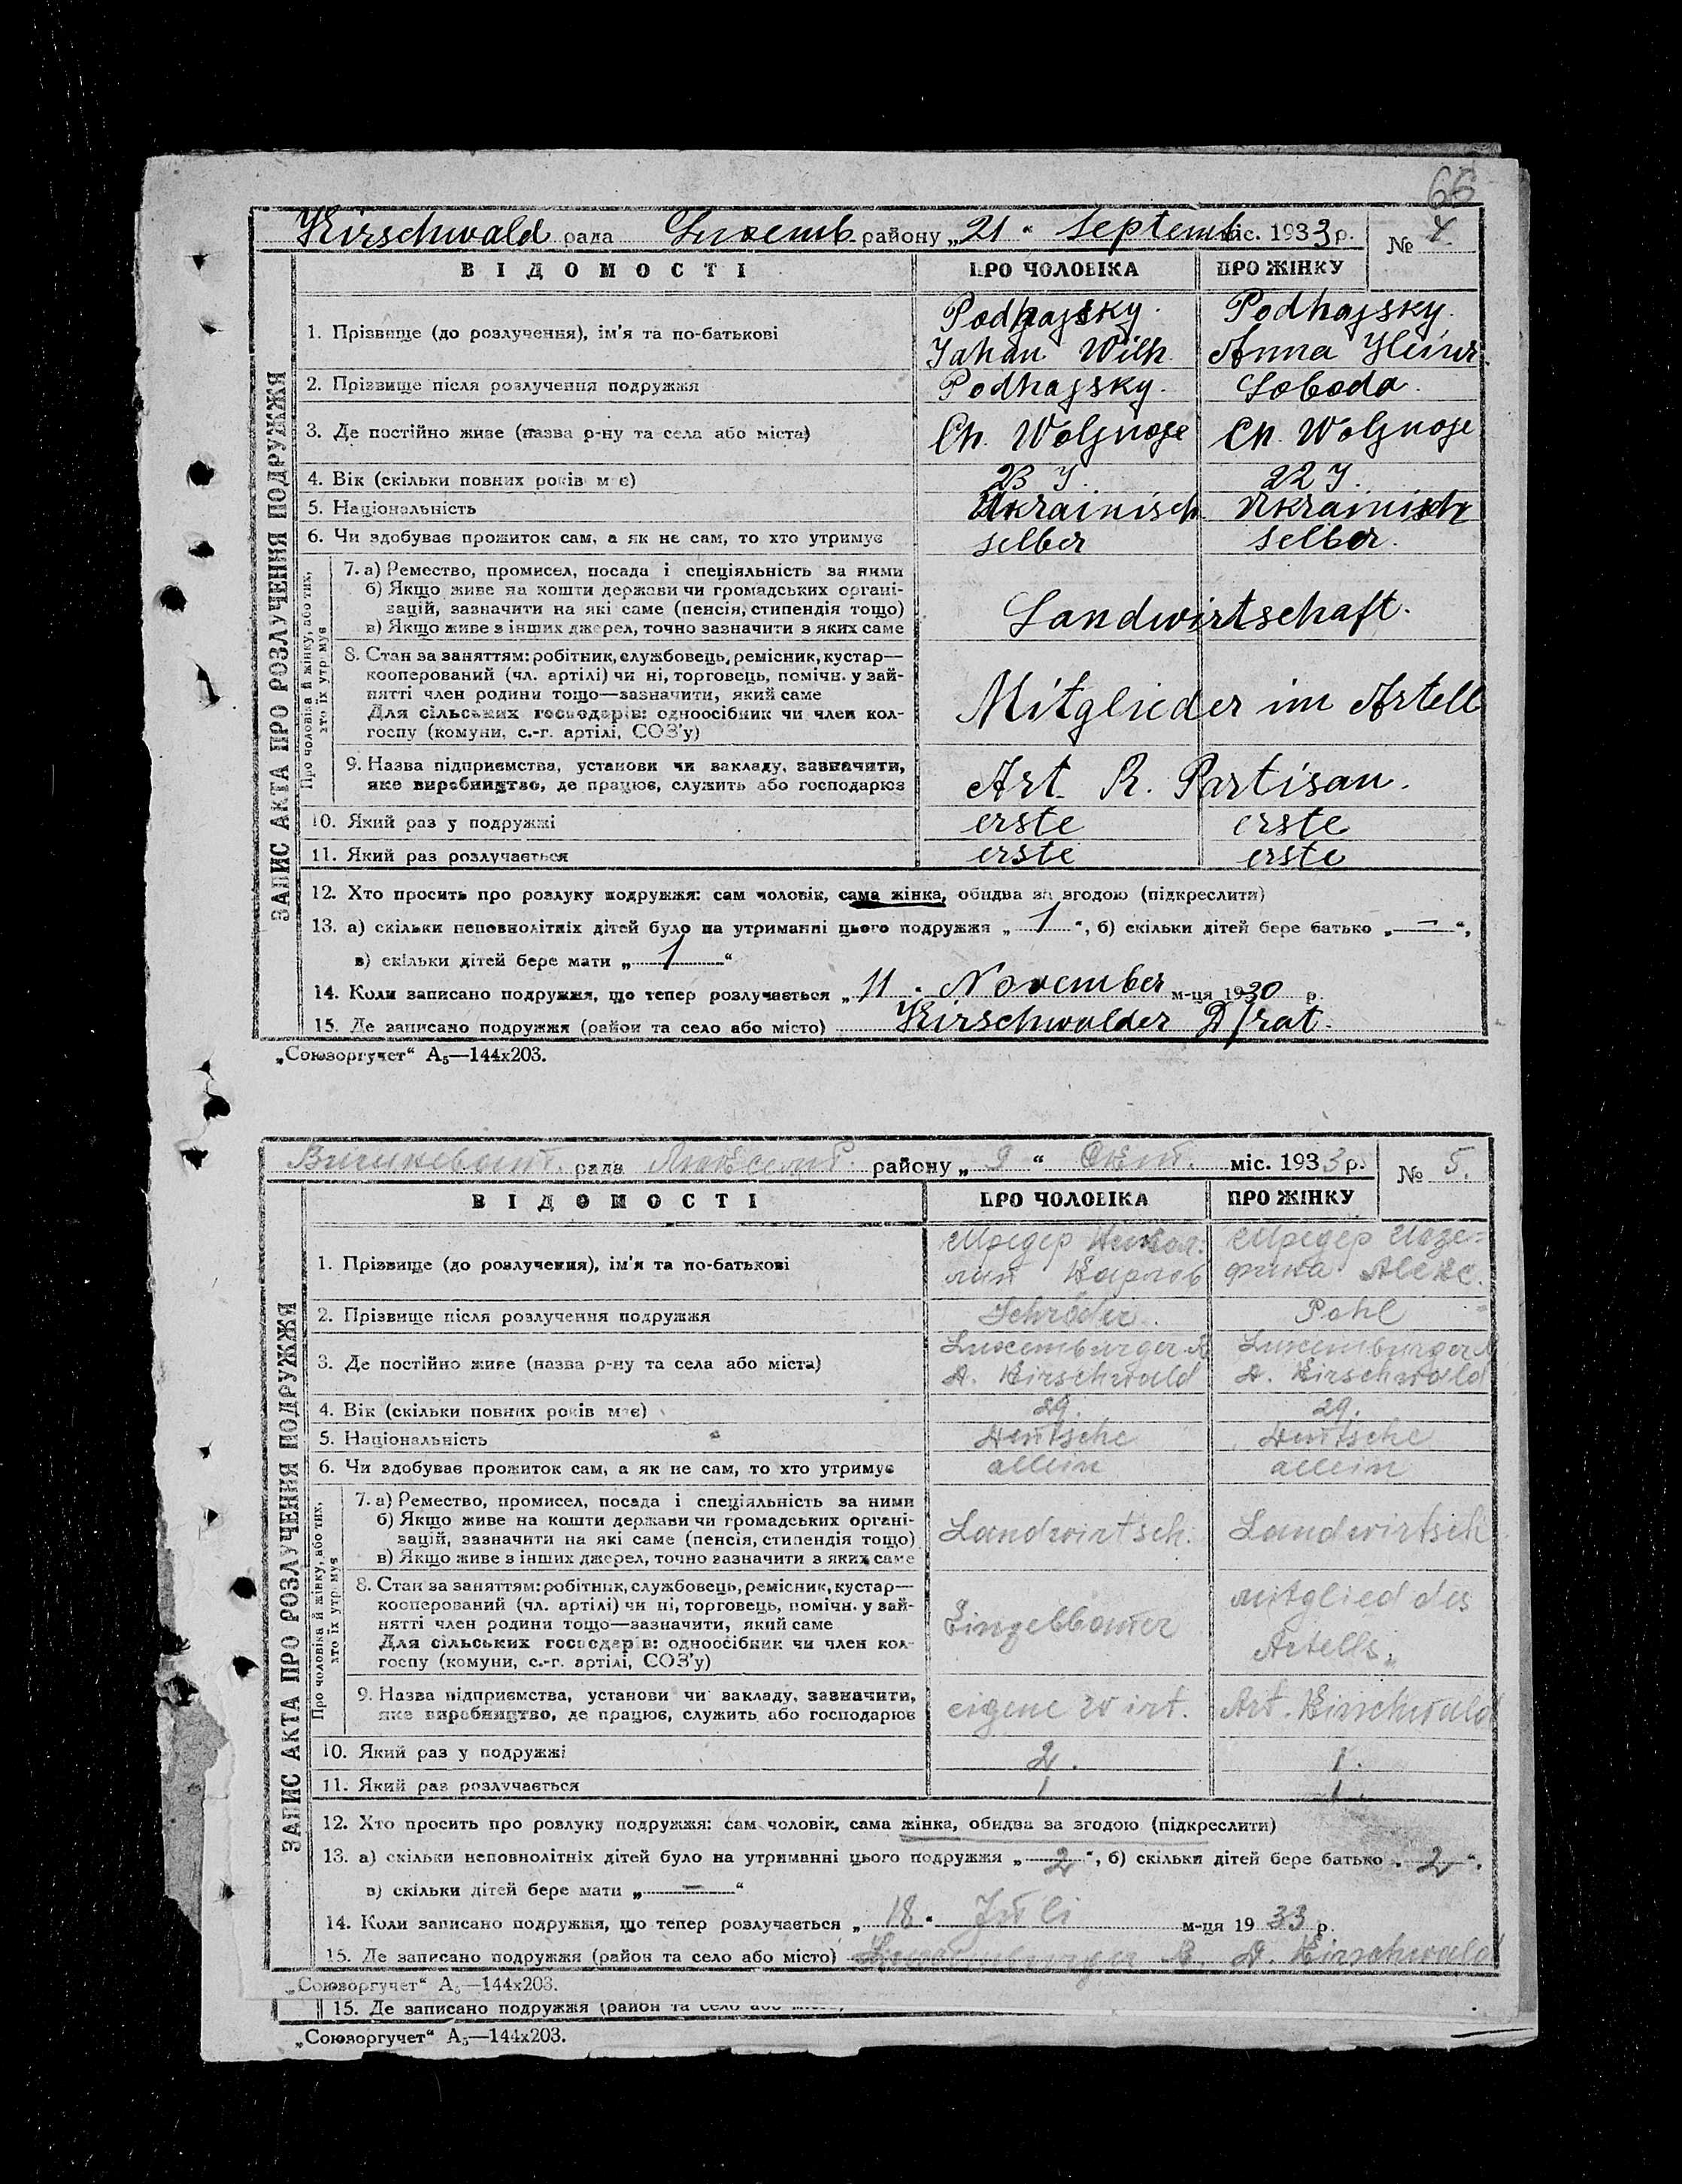 66
Kirschwald рада Luxemb. району „21“ Septemb міс. 1933 р. № 4
ВІДОМОСТІ ПРО ЧОЛОВІКА ПРО ЖІНКУ
ЗАПИС АКТА ПРО РОЗЛУЧЕННЯ ПОДРУЖЖЯ
1. Прізвище (до розлучення), ім'я та по-батькові
Podhajsky. Podhajsky.
Johan Wilh. Anna Heinr.
2. Прізвище після розлучення подружжя Podhajsky. Soboda.
3. Де постійно живе (назва р-ну та села або міста) Ch. Woljnoje Ch. Woljnoje
4. Вік (скільки повних років має) 23 J. 22 J.
5. Національність Ukrainisch Ukrainisch
6. Чи здобуває прожиток сам, а як не сам, то хто утримує selber selber.
Про чоловіка й жінку, або тих,
хто їх утримує
7. а) Ремество, промисел, посада і спеціяльність за ними
б) Якщо живе на кошти держави чи громадських органі-
зацій, зазначити на які саме (пенсія, стипендія тощо)
в) Якщо живе з інших джерел, точно зазначити з яких саме
Landwirtschaft.
8. Стан за заняттям: робітник, службовець, ремісник, кустар—
кооперований (чл. артілі) чи ні, торговець, помічн. у зай-
нятті член родини тощо—зазначити, який саме
Для сільських господарів: одноосібник чи член кол-
госпу (комуни, с.-г. артілі, СОЗ'у)
Mitglieder im Artell
9. Назва підприємства, установи чи закладу, зазначити,
яке виробництво, де працює, служить або господарює
Art. R. Partisan.
10. Який раз у подружжі erste erste
11. Який раз розлучається erste erste
12. Хто просить про розлуку подружжя: сам чоловік, сама жінка, обидва за згодою (підкреслити)
13. а) скільки неповнолітніх дітей було на утриманні цього подружжя „1“, б) скільки дітей бере батько „—“,
в) скільки дітей бере мати „1“
14. Коли записано подружжя, що тепер розлучається „11. November м-ця 1930 р.
15. Де записано подружжя (район та село або місто) Kirschwalder D/rat.
„Союзоргучет“ А₅—144х203.
рада району „9“ Окт. міс. 1933 р. № 5.
ВІДОМОСТІ ПРО ЧОЛОВІКА ПРО ЖІНКУ
ЗАПИС АКТА ПРО РОЗЛУЧЕННЯ ПОДРУЖЖЯ
1. Прізвище (до розлучення), ім'я та по-батькові
Шредер Шредер Иозе-
Карлов фина Алекс.
2. Прізвище після розлучення подружжя Schröder. Pohl
3. Де постійно живе (назва р-ну та села або міста)
Luxemburger R Luxemburger R
D. Kirschwald D. Kirschwald
4. Вік (скільки повних років має) 29. 29.
5. Національність Deutsche Deutsche
6. Чи здобуває прожиток сам, а як не сам, то хто утримує allein allein
Про чоловіка й жінку, або тих,
хто їх утримує
7. а) Ремество, промисел, посада і спеціяльність за ними
б) Якщо живе на кошти держави чи громадських органі-
зацій, зазначити на які саме (пенсія, стипендія тощо)
в) Якщо живе з інших джерел, точно зазначити з яких саме
Landwirtsch. Landwirtsch
8. Стан за заняттям: робітник, службовець, ремісник, кустар—
кооперований (чл. артілі) чи ні, торговець, помічн. у зай-
нятті член родини тощо—зазначити, який саме
Для сільських господарів: одноосібник чи член кол-
госпу (комуни, с.-г. артілі, СОЗ'у)
Einzelbauer mitglied des
Artells.
9. Назва підприємства, установи чи закладу, зазначити,
яке виробництво, де працює, служить або господарює
eigene Wirt. Art. Kirschwald
10. Який раз у подружжі 2. 1.
11. Який раз розлучається 1 1.
12. Хто просить про розлуку подружжя: сам чоловік, сама жінка, обидва за згодою (підкреслити)
13. а) скільки неповнолітніх дітей було на утриманні цього подружжя „2“, б) скільки дітей бере батько „2“.
в) скільки дітей бере мати „—“
14. Коли записано подружжя, що тепер розлучається „18. Juli м-ця 1933 р.
15. Де записано подружжя (район та село або місто) Luxemburger R. D. Kirschwald
„Союзоргучет“ А₅—144х203.
15. Де записано подружжя (район та село або
„Союзоргучет“ А₅—144х203.